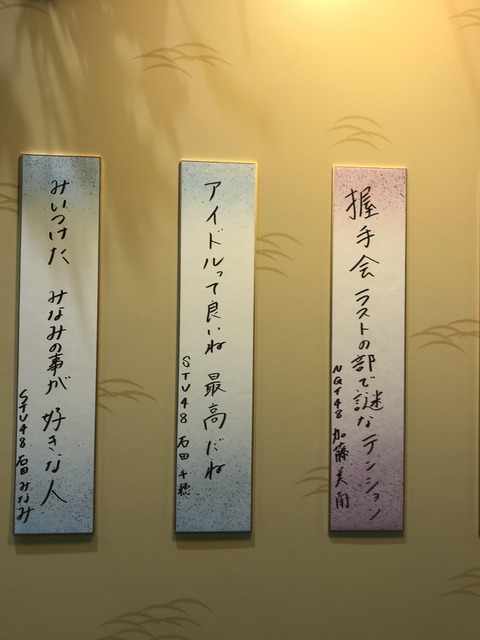 握手会ラストの部で謎なテンション
NGT48 加藤美南
アイドルって良いね 最高だね
STU48 石田千穂
みいつけた みなみの事が 好きな人
STU48 石田みなみ